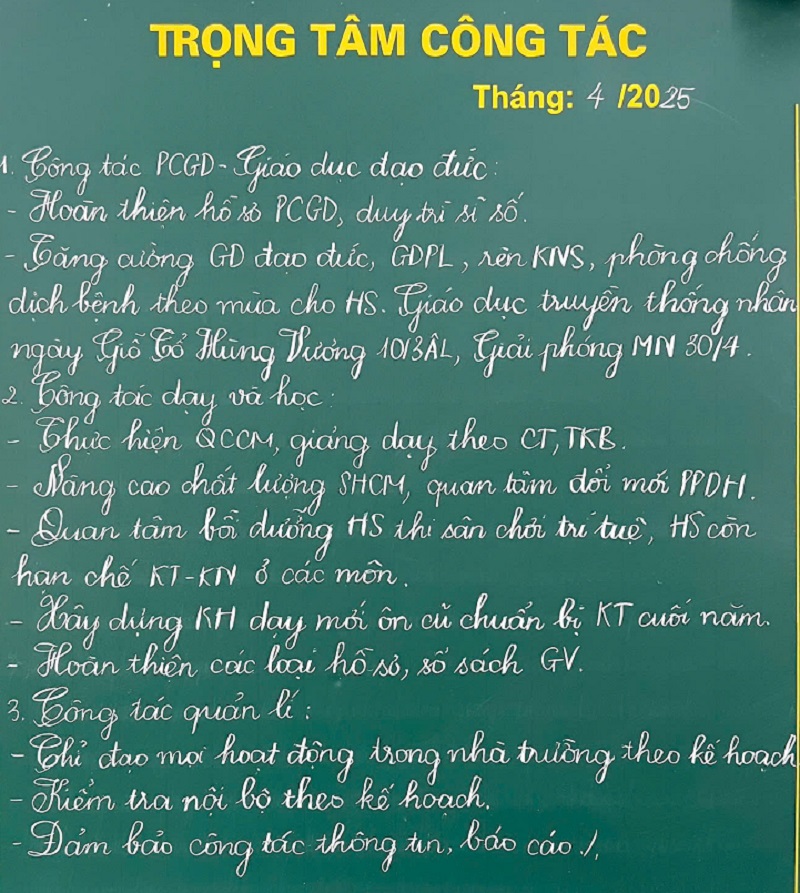 TRỌNG TÂM CÔNG TÁC
Tháng: 4 /2025
1. Công tác PCGD - Giáo dục đạo đức:
- Hoàn thiện hồ sơ PCGD, duy trì sĩ số.
- Tăng cường GD đạo đức, GDPL, rèn KNS, phòng chống
dịch bệnh theo mùa cho HS. Giáo dục truyền thống nhân
ngày Giỗ Tổ Hùng Vương 10/3ÂL, Giải phóng MN 30/4.
2. Công tác dạy và học:
- Thực hiện QCCM, giảng dạy theo CT, TKB.
- Nâng cao chất lượng SHCM, quan tâm đổi mới PPDH.
- Quan tâm bồi dưỡng HS thi sân chơi trí tuệ, HS còn
hạn chế KT-KN ở các môn.
- Xây dựng KH dạy mới ôn cũ chuẩn bị KT cuối năm.
- Hoàn thiện các loại hồ sơ, sổ sách GV.
3. Công tác quản lí:
- Chỉ đạo mọi hoạt động trong nhà trường theo kế hoạch
- Kiểm tra nội bộ theo kế hoạch.
- Đảm bảo công tác thông tin, báo cáo ./.